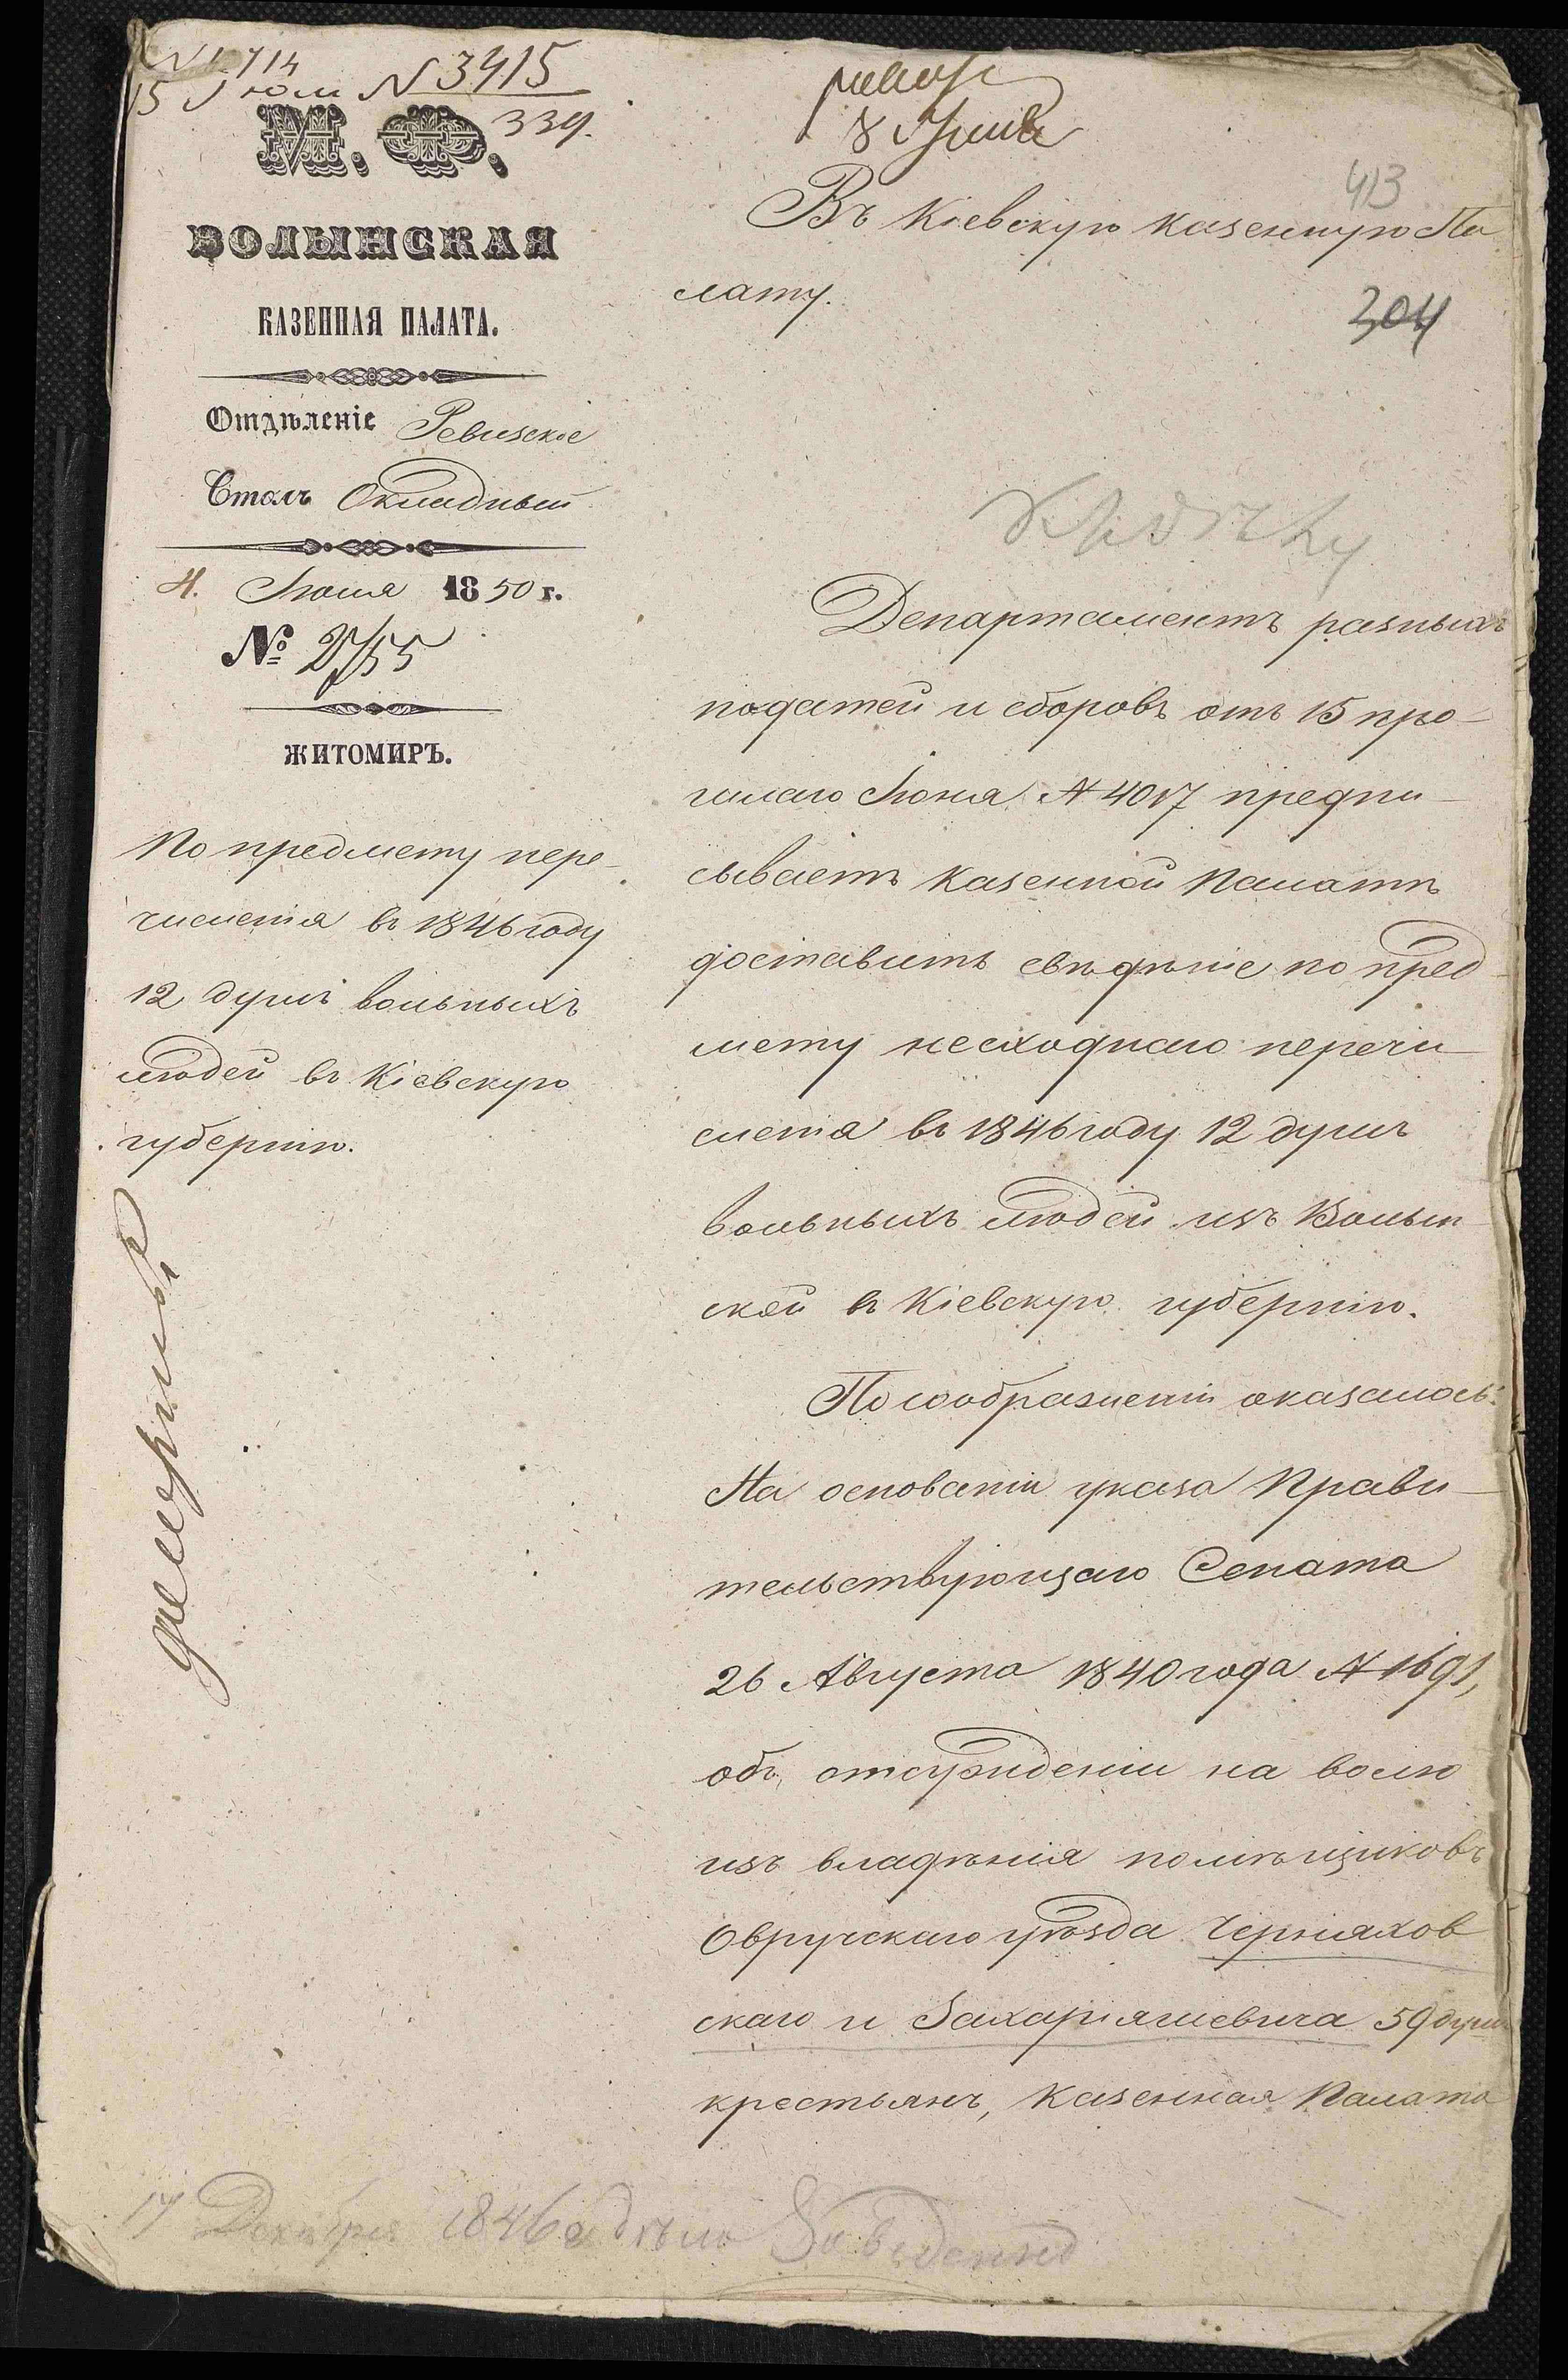 15 Іюля N 3415
339.
М. Ф.
ВОЛЫНСКАЯ
КАЗЕННАЯ ПАЛАТА.
Отдѣленіе Ревизское
Столъ Окладный
4. Іюля 1850 г.
№ 2755
ЖИТОМИРЪ.
По предмету пере-
численія въ 1846 году
12 душъ вольныхъ
людей въ Кіевскую
губернію.
8 Іюля
413
Въ Кіевскую Казенную Па
лату.
304
Департаментъ разныхъ
податей и сборовъ отъ 15 про-
шлаго Іюня N 4017 предпи-
сываетъ Казенной Палатѣ
доставить свѣдѣніе по пред-
мету несходнаго перечи-
сленія въ 1846 году 12 душъ
вольныхъ людей изъ Волын-
ской въ Кіевскую губернію.
По соображеніи оказалось:
На основаніи указа Прави-
тельствующаго Сената
26 Августа 1840 года N 1691,
объ отсужденіи на волю
изъ владѣнія помѣщиковъ
Овручскаго уѣзда Черняхов
скаго и Захаріяшевича 59 душъ
крестьянъ, Казенная Палата
17 Декабря 1846 дѣло